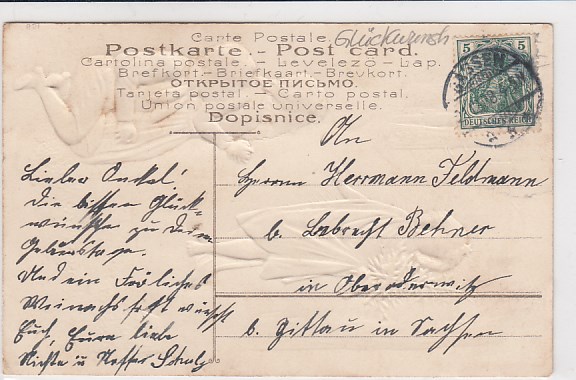 Carte Postale.
Glückwunsch
Postkarte. - Post card.
Cartolina postale. - Levelező - Lap.
Brefkort. - Briefkaart. - Brevkort.
ОТКРЫТОЕ ПИСЬМО.
Tarjeta postal. - Carto postal.
Union postale universelle.
Dopisnice.
5 5
DEUTSCHES REICH
An
Herrn Herrmann Feldmann
b. Lebrecht Behner
in Oberoderwitz
b. Zittau in Sachsen
Lieber Onkel!
Die besten Glück-
wünsche zu Deinem
Geburtstage.
Und ein Fröliches
Weinachsfest wünscht
Euch, Eure liebe
Nichte u Neffer Schulz